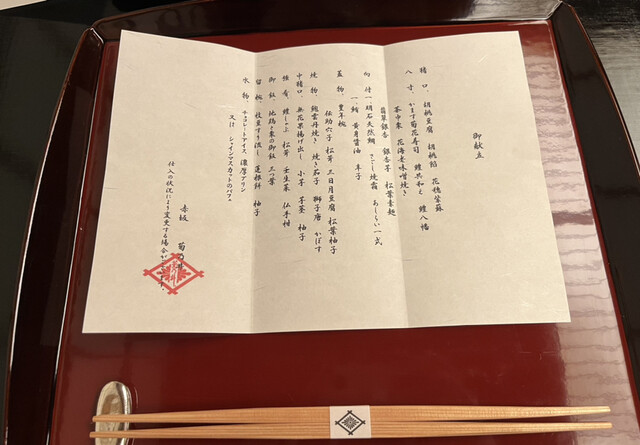 御献立
猪口、胡桃豆腐 胡桃餡 花穂紫蘇
八寸、かます菊花寿司 鱧共和え 鱧八幡
茶巾栗 花海老味噌焼き
翡翠銀杏 銀杏芋 松葉素麺
向付 一、明石天然鯛 さごし焼霜 あしらい一式
一、鮪 黄身醤油 辛子
蓋物、豊年椀
伝助穴子 松茸 三日月豆腐 松葉柚子
焼物、鮑雲丹焼き 焼き茄子 獅子唐 かぼす
中猪口、無花果揚げ出し 小芋 芋茎 柚子
強肴、鱧しゃぶ 松茸 壬生菜 仏手柑
御飯、地鶏と栗の御飯 三つ葉
留椀、枝豆すり流し 蓮根餅 柚子
水物、チョコレートアイス 濃厚プリン
又は シャインマスカットのパフェ
赤坂 菊乃井
仕入の状況により変更する場合がございます。